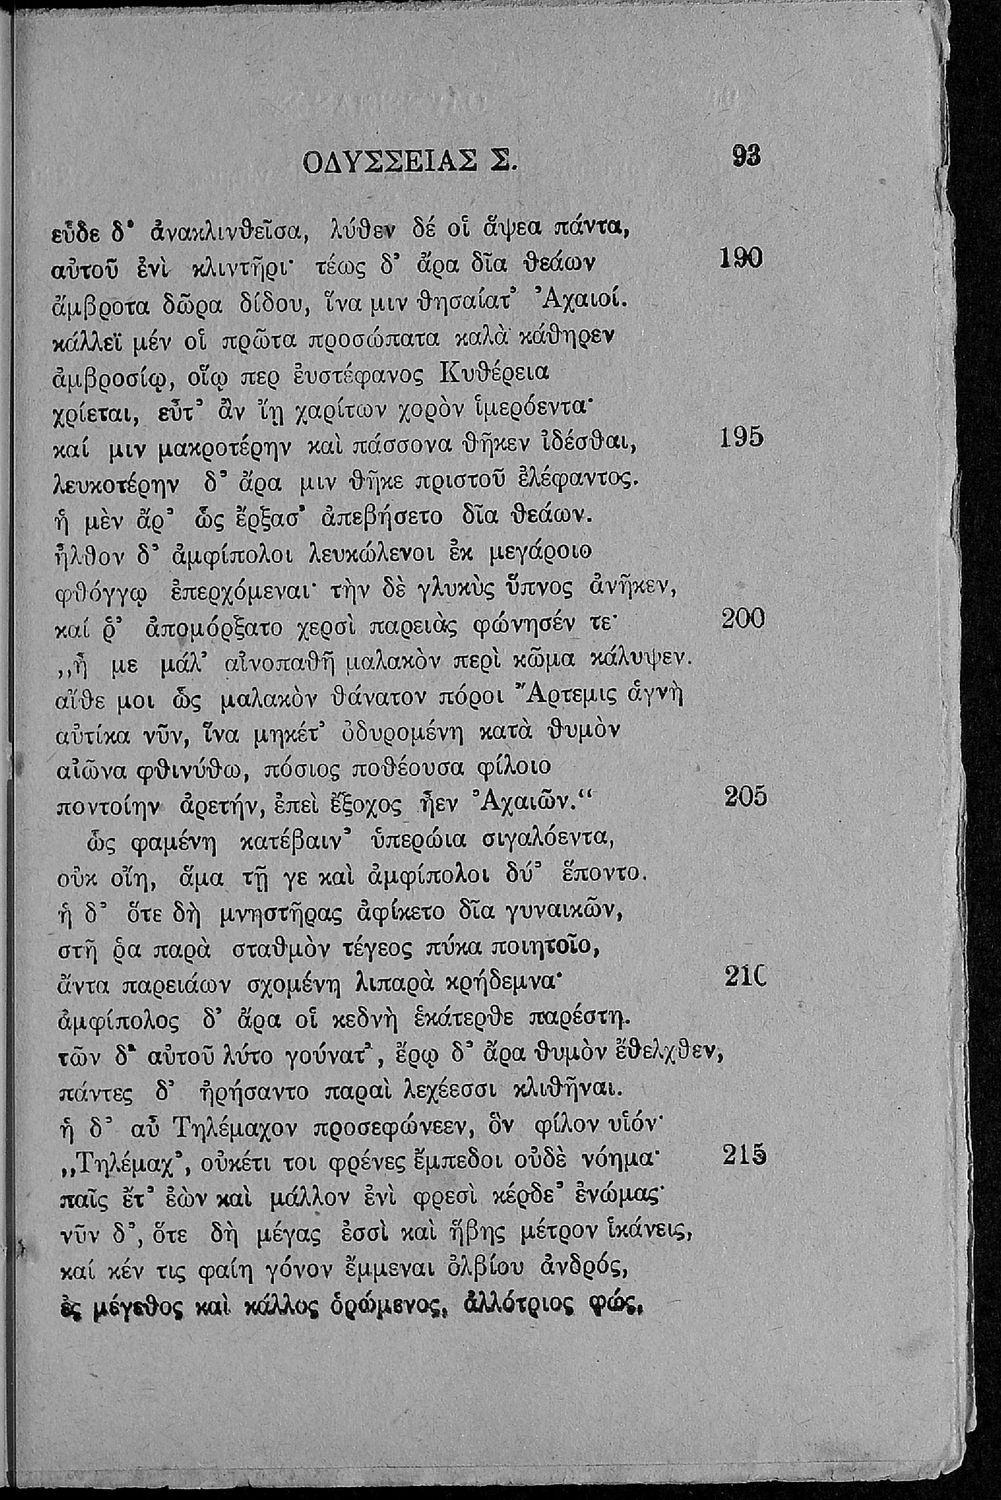 ΟΔΥΣΣΕΙΑΣ Σ. 93
εὗδε δ' ἀνακλινθεῖσα, λύθεν δέ οἱ ἅψεα πάντα,
αὐτοῦ ἐνὶ κλιντῆρι· τέως δ' ἄρα δῖα θεάων 190
ἄμβροτα δῶρα δίδου, ἵνα μιν θησαίατ' Ἀχαιοί.
κάλλεϊ μέν οἱ πρῶτα προσώπατα καλὰ κάθηρεν
ἀμβροσίῳ, οἵῳ περ ἐυστέφανος Κυθέρεια
χρίεται, εὖτ' ἂν ἴῃ χαρίτων χορὸν ἱμερόεντα·
καί μιν μακροτέρην καὶ πάσσονα θῆκεν ἰδέσθαι, 195
λευκοτέρην δ' ἄρα μιν θῆκε πριστοῦ ἐλέφαντος.
ἡ μὲν ἄρ' ὣς ἔρξασ' ἀπεβήσετο δῖα θεάων.
ἦλθον δ' ἀμφίπολοι λευκώλενοι ἐκ μεγάροιο
φθόγγῳ ἐπερχόμεναι· τὴν δὲ γλυκὺς ὕπνος ἀνῆκεν,
καί ῥ' ἀπομόρξατο χερσὶ παρειὰς φώνησέν τε· 200
„ἦ με μάλ' αἰνοπαθῆ μαλακὸν περὶ κῶμα κάλυψεν.
αἴθε μοι ὣς μαλακὸν θάνατον πόροι Ἄρτεμις ἁγνὴ
αὐτίκα νῦν, ἵνα μηκέτ' ὀδυρομένη κατὰ θυμὸν
αἰῶνα φθινύθω, πόσιος ποθέουσα φίλοιο
παντοίην ἀρετήν, ἐπεὶ ἔξοχος ἦεν Ἀχαιῶν.“ 205
ὣς φαμένη κατέβαιν' ὑπερώια σιγαλόεντα,
οὐκ οἴη, ἅμα τῇ γε καὶ ἀμφίπολοι δύ' ἕποντο.
ἡ δ' ὅτε δὴ μνηστῆρας ἀφίκετο δῖα γυναικῶν,
στῆ ῥα παρὰ σταθμὸν τέγεος πύκα ποιητοῖο,
ἄντα παρειάων σχομένη λιπαρὰ κρήδεμνα· 210
ἀμφίπολος δ' ἄρα οἱ κεδνὴ ἑκάτερθε παρέστη.
τῶν δ' αὐτοῦ λύτο γούνατ', ἔρῳ δ' ἄρα θυμὸν ἔθελχθεν,
πάντες δ' ἠρήσαντο παραὶ λεχέεσσι κλιθῆναι.
ἡ δ' αὖ Τηλέμαχον προσεφώνεεν, ὃν φίλον υἱόν·
„Τηλέμαχ', οὐκέτι τοι φρένες ἔμπεδοι οὐδὲ νόημα· 215
παῖς ἔτ' ἐὼν καὶ μᾶλλον ἐνὶ φρεσὶ κέρδε' ἐνώμας·
νῦν δ', ὅτε δὴ μέγας ἐσσὶ καὶ ἥβης μέτρον ἱκάνεις,
καί κέν τις φαίη γόνον ἔμμεναι ὀλβίου ἀνδρός,
ἐς μέγεθος καὶ κάλλος ὁρώμενος, ἀλλότριος φώς,